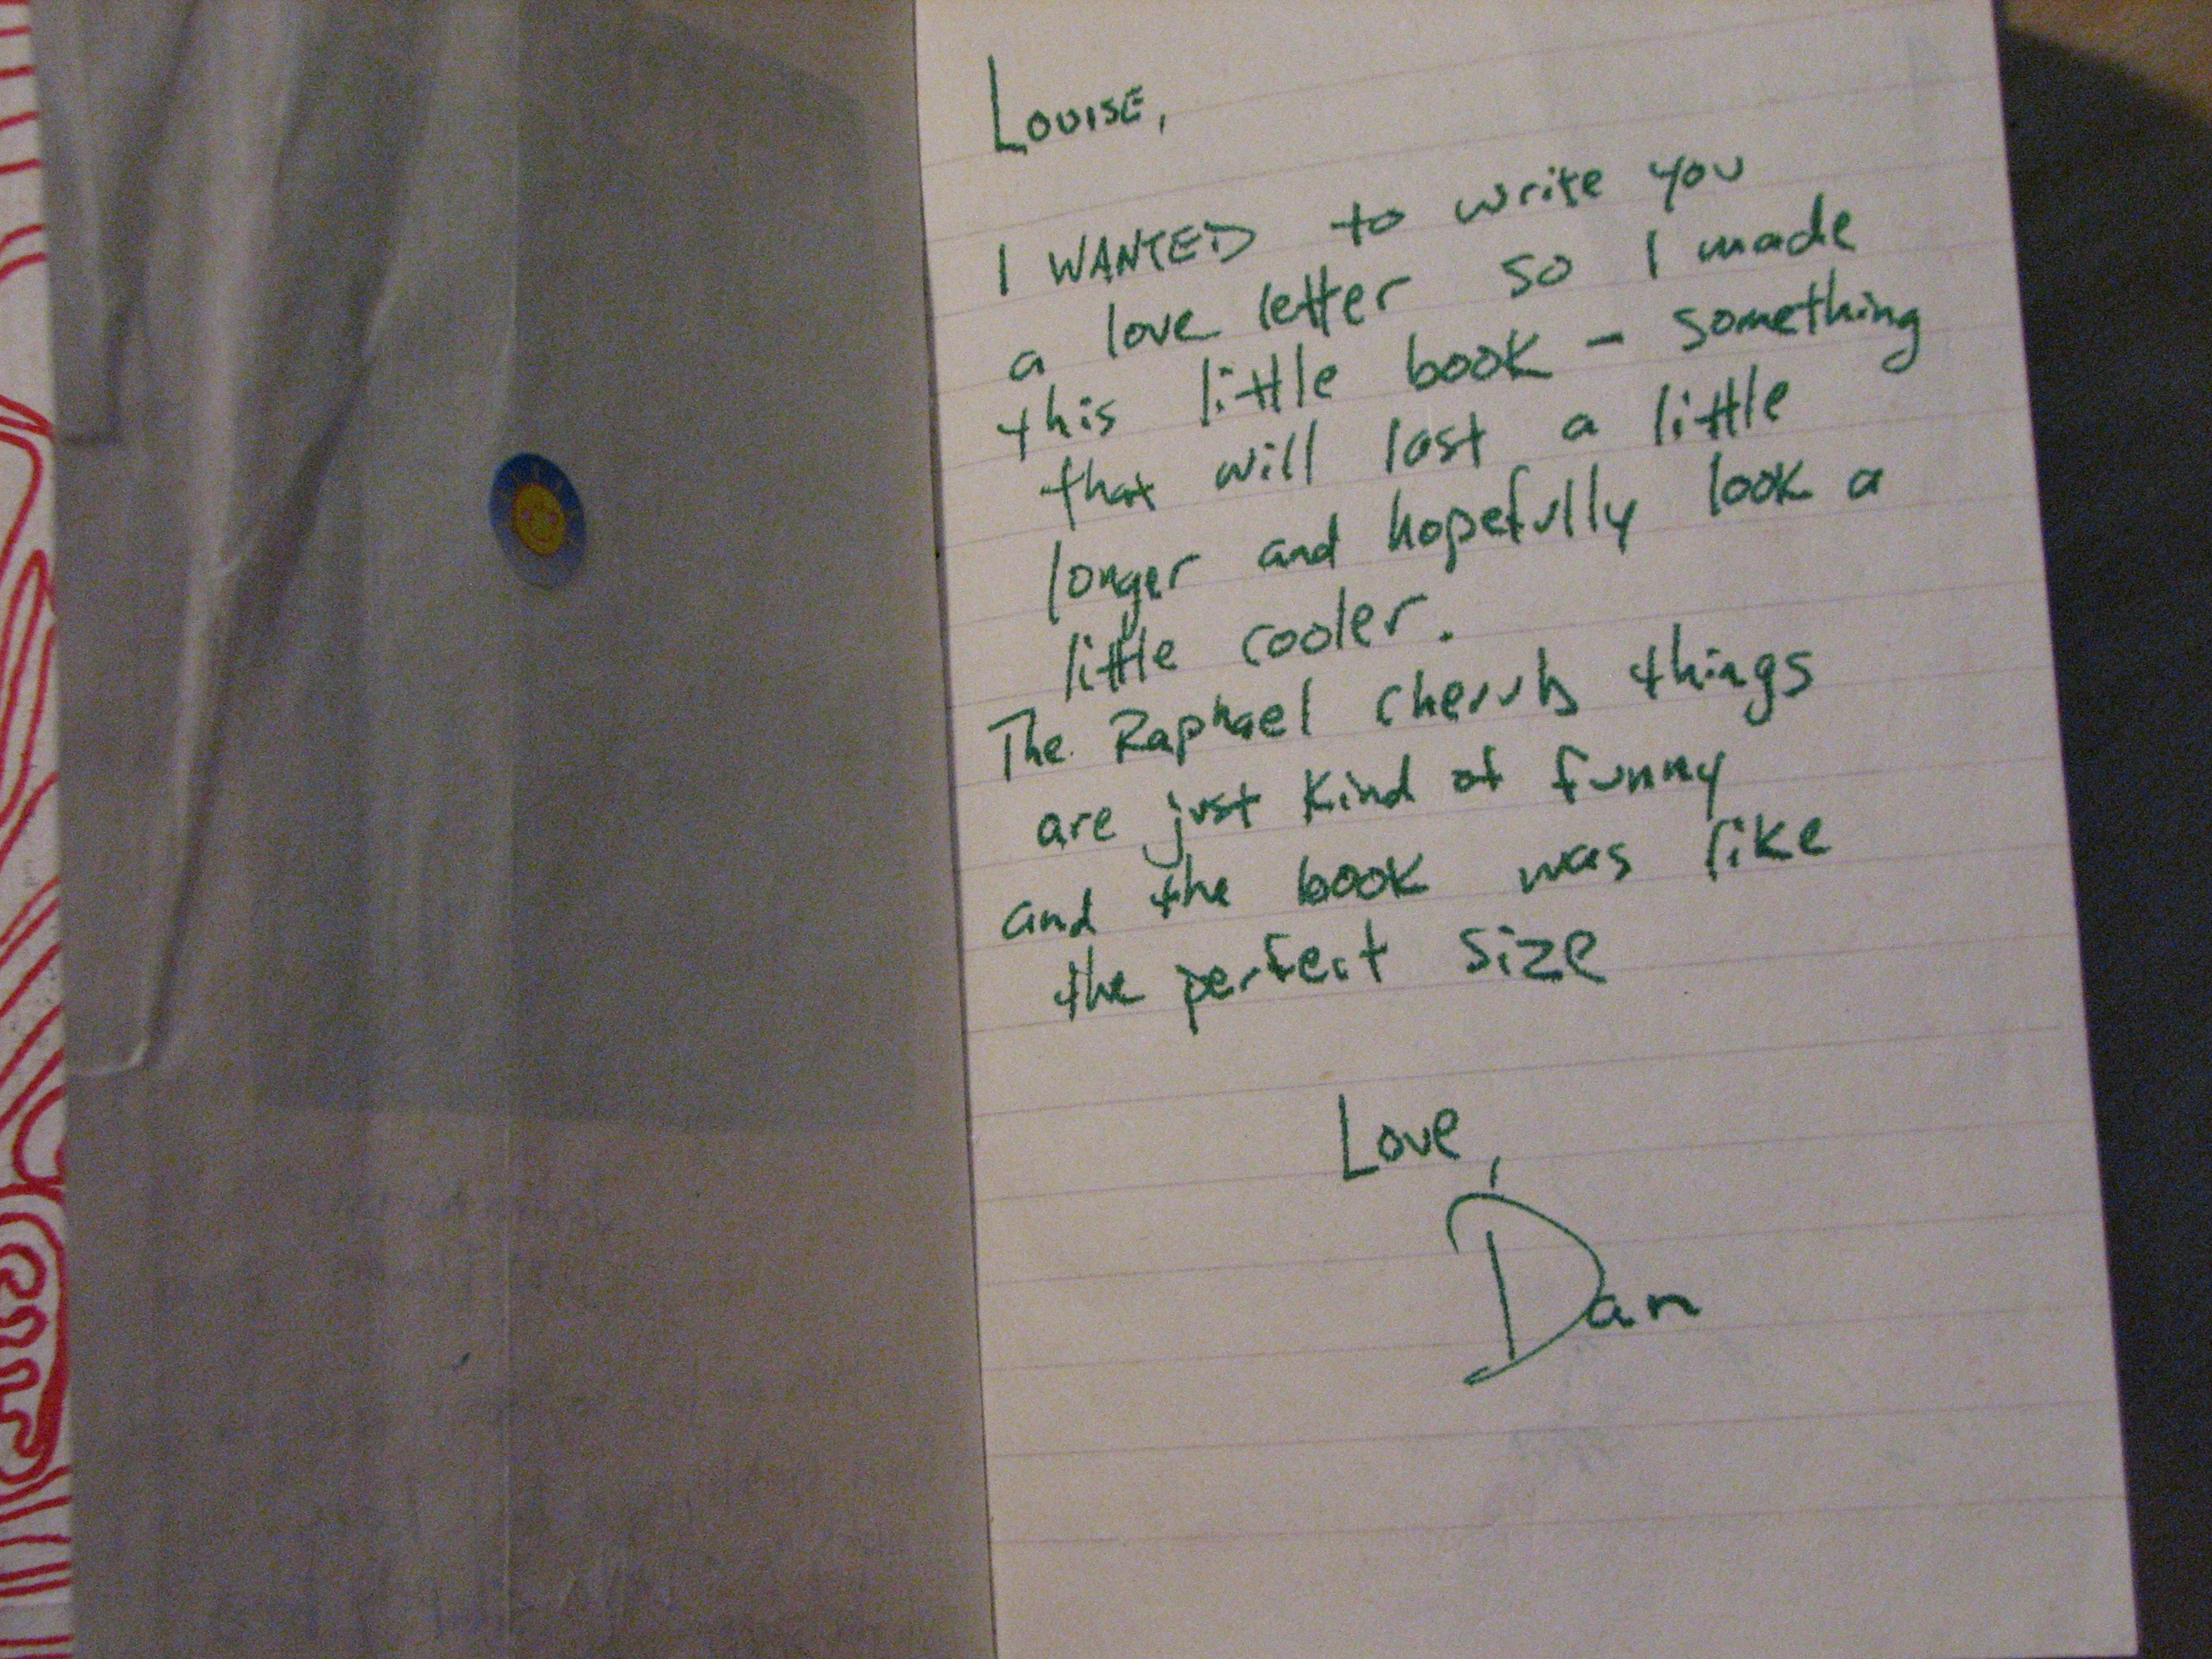 LOUISE,
I WANTED to write you
a love letter so I made
this little book - something
that will last a little
longer and hopefully look a
little cooler.
The Raphael cherubs things
are just kind of funny
and the book was like
the perfect size
Love,
Dan